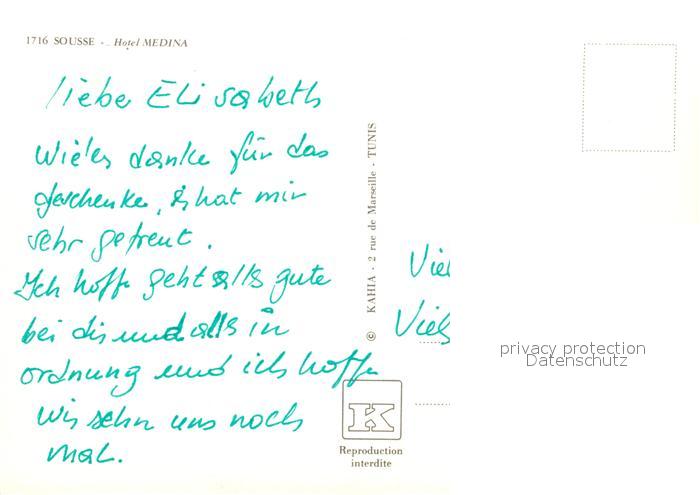 1716 SOUSSE - Hotel MEDINA
liebe Elisabeth
Wieles danke für das
geschenke, es hat mir
sehr gefreut.
Ich hoffe geht alls gute
bei dir und alls in
ordnung und ich hoffe
wir sehn uns noch
mal.
© KAHIA - 2 rue de Marseille - TUNIS
Viel
Viels
privacy protection
Datenschutz
K
Reproduction
interdite